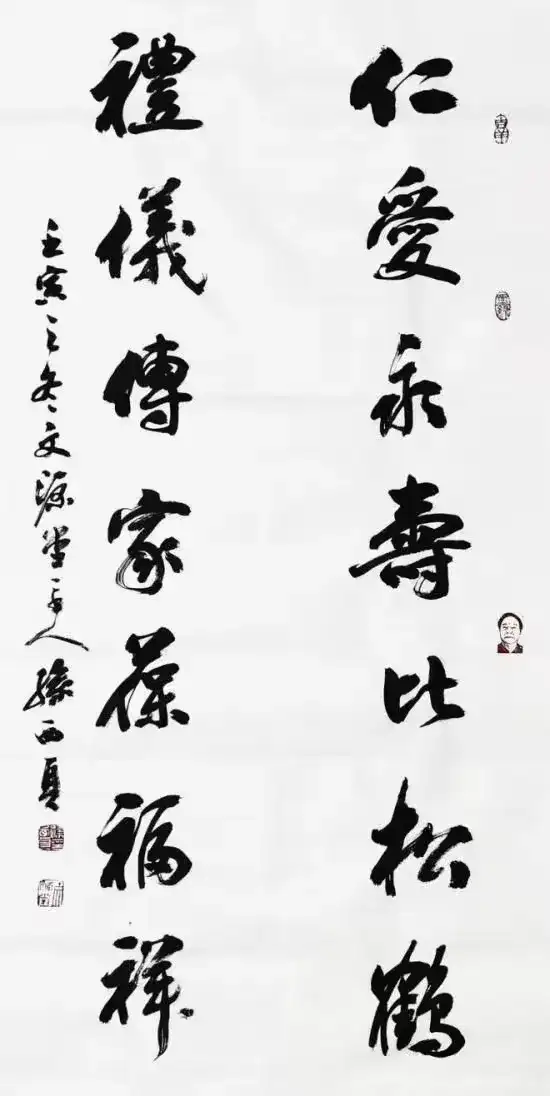 仁愛永壽比松鶴
禮儀傳家葆福祥
壬寅之冬文源堂主人西夏